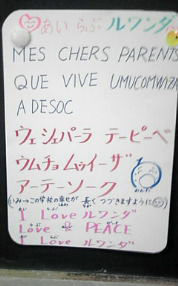 あい らぶ ルワンダ
MES CHERS PARENTS
QUE VIVE UMUCOMWIZA
A DESOC
ウェシェパーラ テーピーベ
ウムチョムゥイーザ
アーテーソーク
(いみ→この学校の幸せが 長く つづきますように)
I Love ルワンダ
Love PEACE
I Love ルワンダ